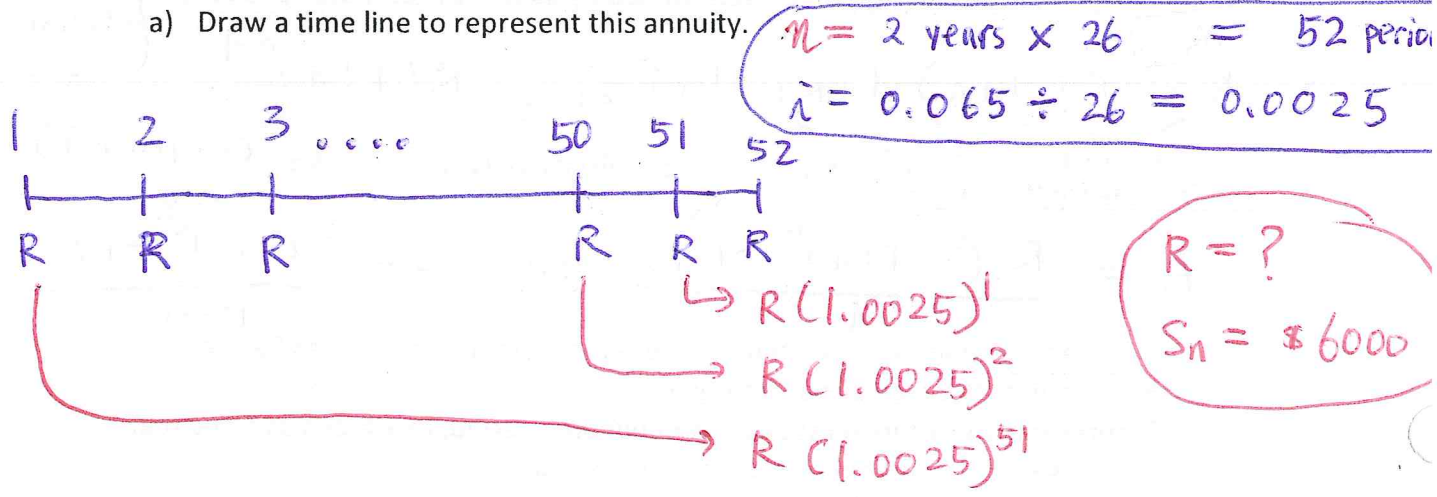 a) Draw a time line to represent this annuity.
n = 2 years × 26 = 52
i = 0.065 ÷ 26 = 0.0025
1 2 3 .... 50 51 52
R R R R R R
R = ?
Sn = $6000
R(1.0025)^1
R(1.0025)^2
R(1.0025)^51